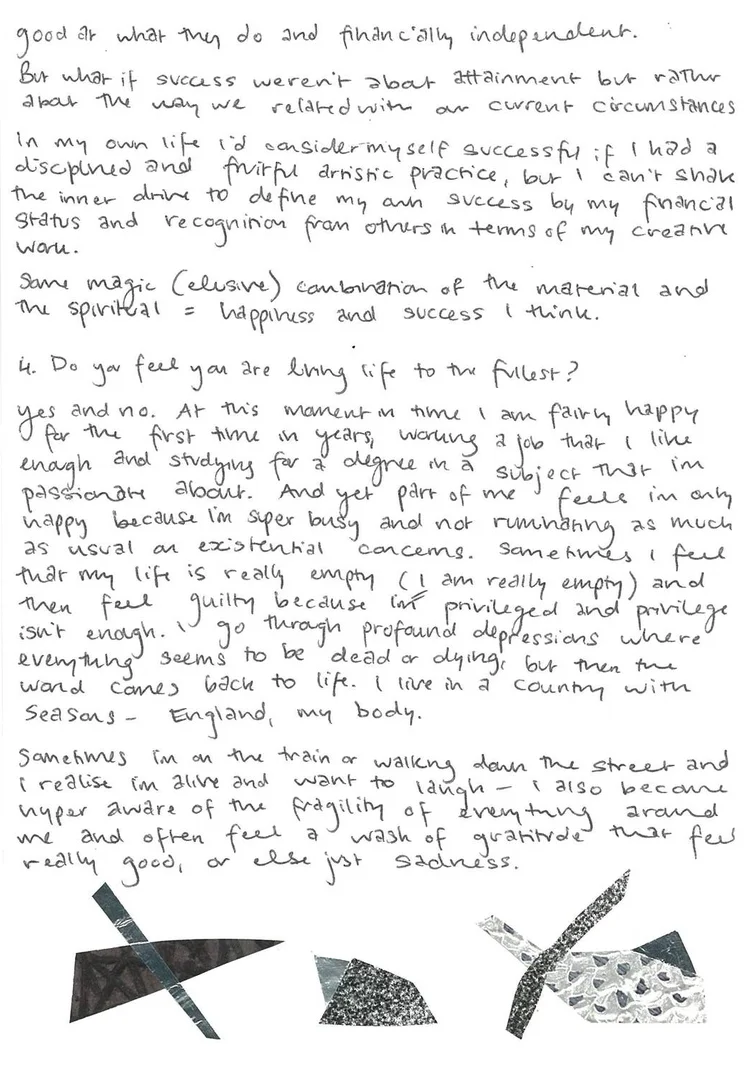 good at what they do and financially independent.
But what if success weren't about attainment but rather
about the way we related with our current circumstances
In my own life I'd consider myself successful if I had a
disciplined and fruitful artistic practice, but I can't shake
the inner drive to define my own success by my financial
status and recognition from others in terms of my creative
work.
Some magic (elusive) combination of the material and
the spiritual = happiness and success I think.
4. Do you feel you are living life to the fullest?
yes and no. At this moment in time I am fairly happy
for the first time in years, working a job that I like
enough and studying for a degree in a subject that im
passionate about. And yet part of me feels im only
happy because I'm super busy and not ruminating as much
as usual on existential concerns. Sometimes I feel
that my life is really empty (I am really empty) and
then feel guilty because im privileged and privilege
isn't enough. I go through profound depressions where
everything seems to be dead or dying, but then the
world comes back to life. I live in a country with
seasons - England, my body.
Sometimes im on the train or walking down the street and
I realise im alive and want to laugh - I also become
hyper aware of the fragility of everything around
me and often feel a wash of gratitude that feels
really good, or else just sadness.